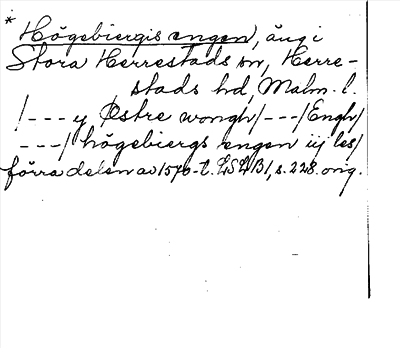 * Högebiergis engen, äng i
Stora Herrestads sn, Herre-
stads hd, Malm. l.
/---y Østre wongh/---/Engh/
---/ högebiergs engen iij les/
förra delen av 1570-t. LSLB1, s. 228. orig.